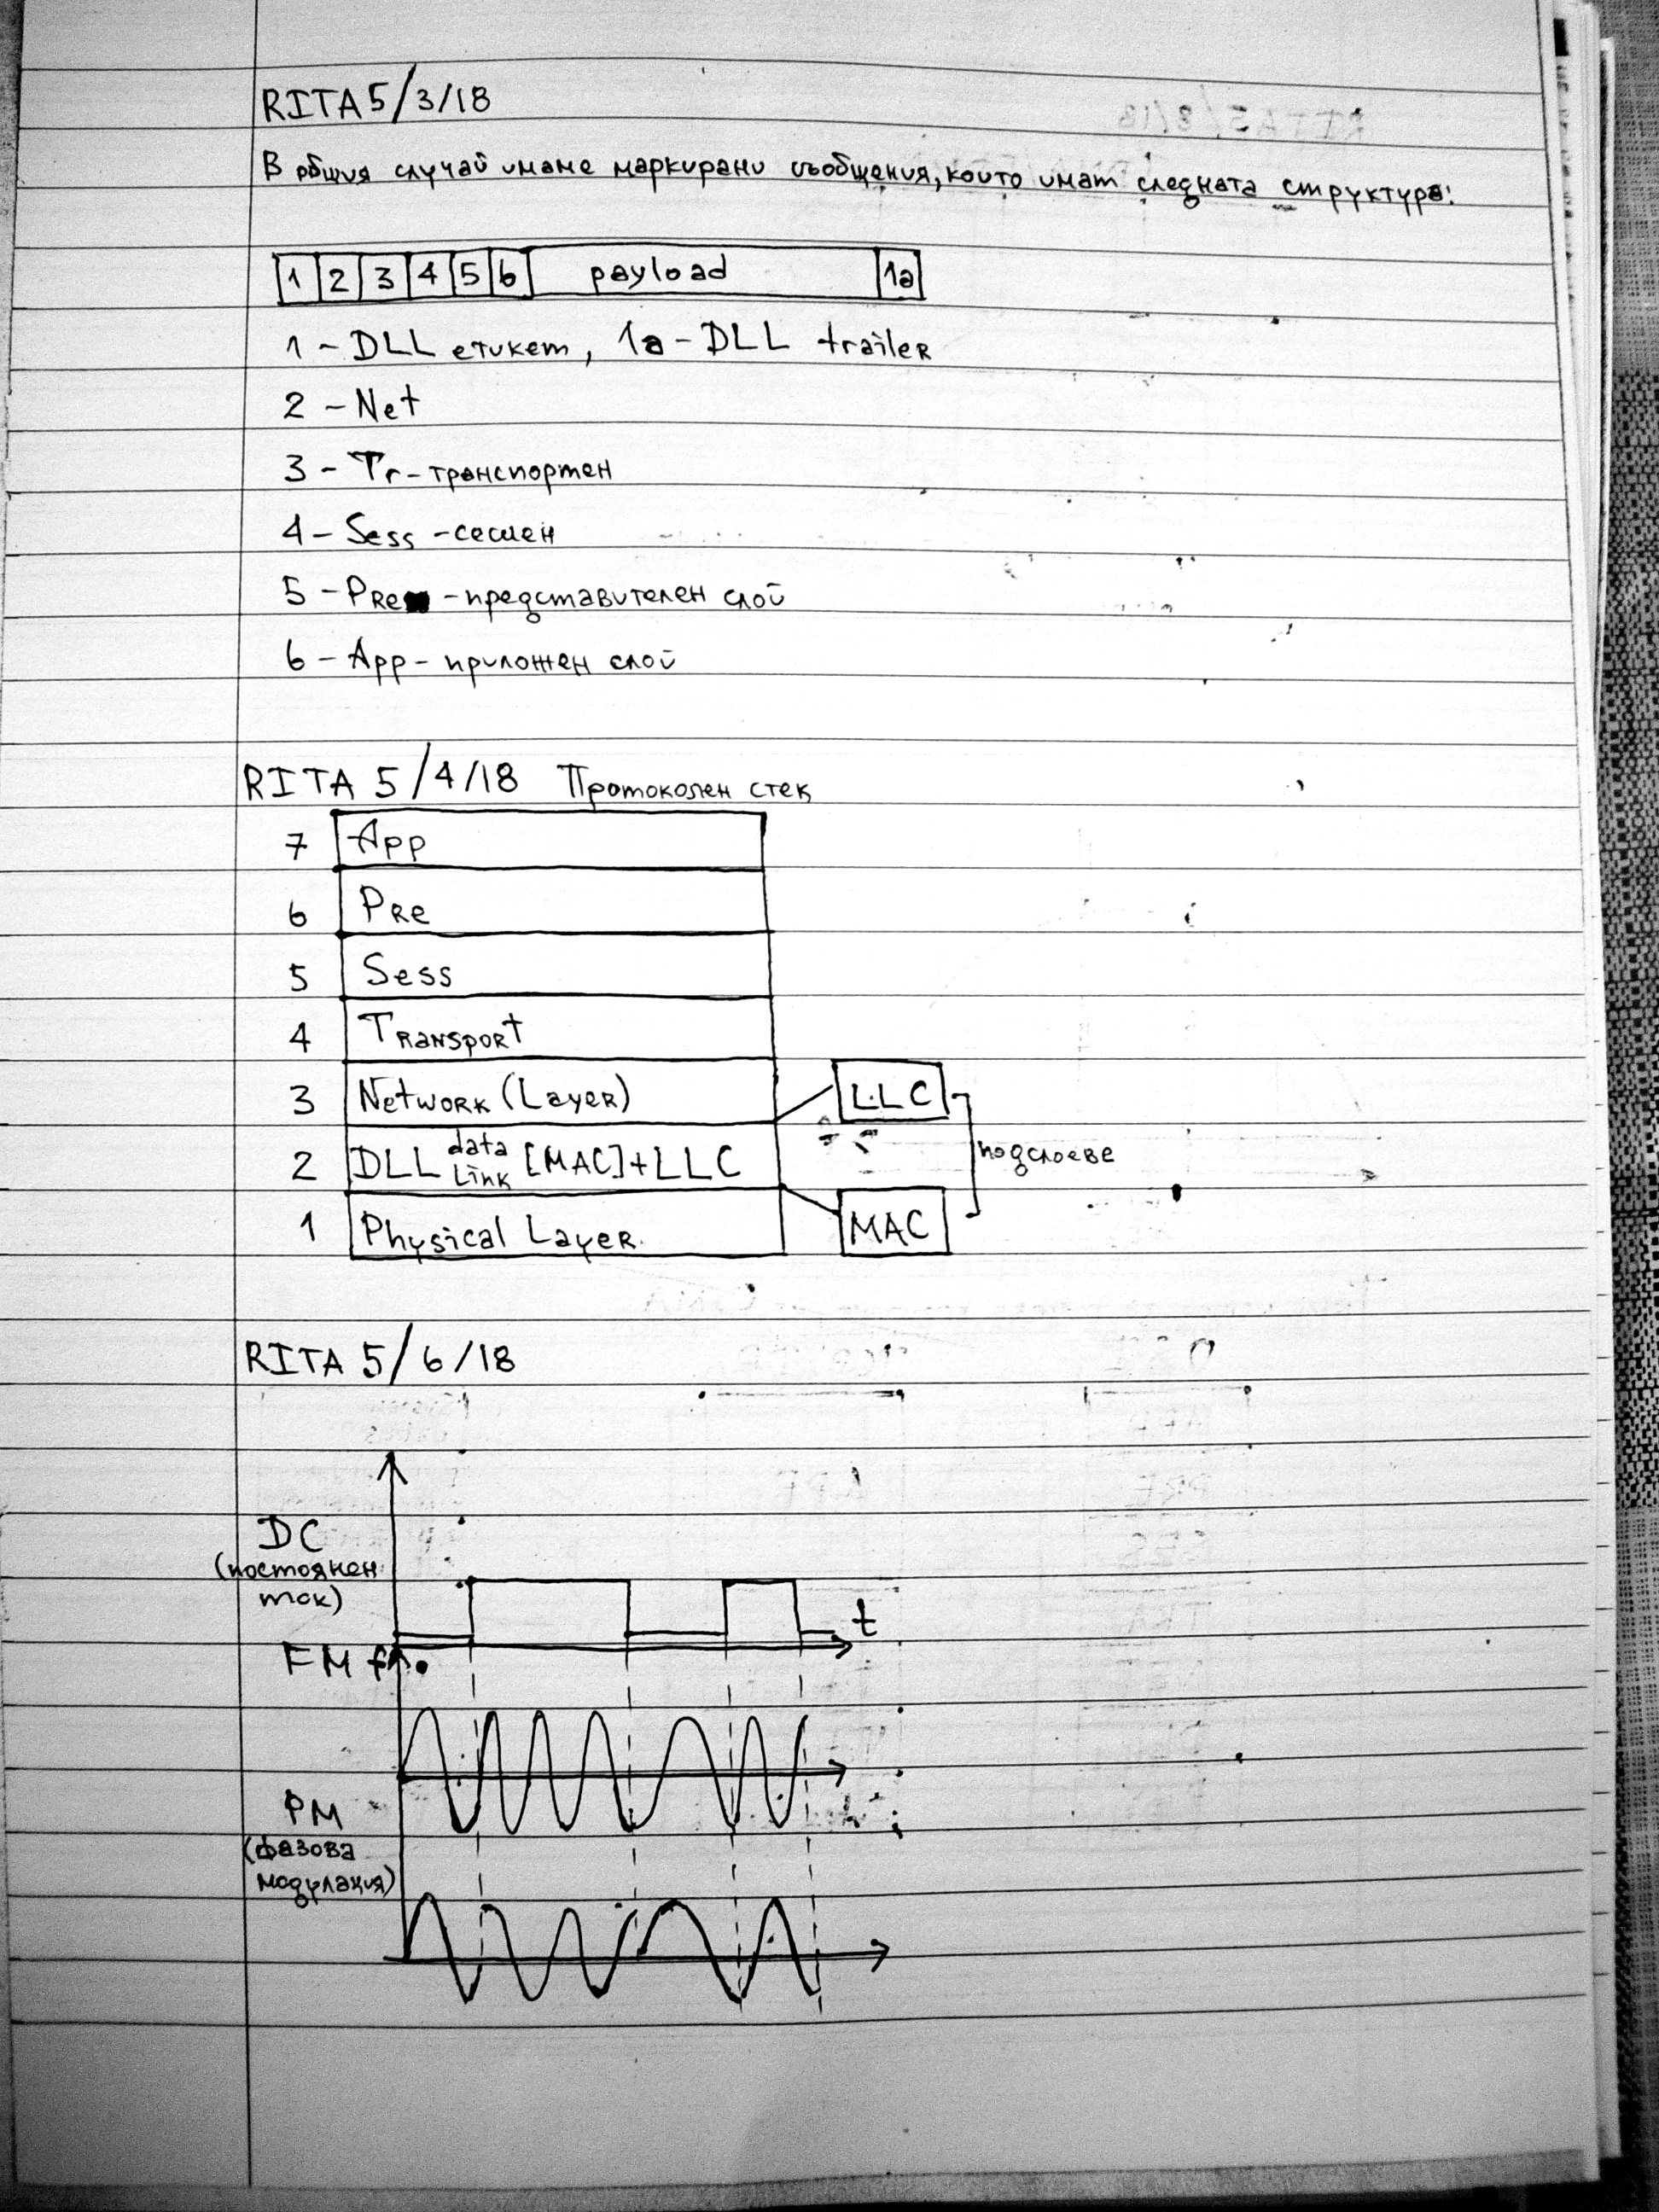 RITA 5/3/18
В общия случай имаме маркирани съобщения, които имат следната структура:
1 2 3 4 5 6 payload 1а
1 - DLL етикет, 1а - DLL trailer
2 - Net
3 - Tr - транспортен
4 - Sess - сесиен
5 - PRe - представителен слой
6 - App - приложен слой
RITA 5/4/18 Протоколен стек
7 App
6 PRe
5 Sess
4 TRANSPORT
3 NetwORK (LayeR) LLC
2 DLL data Link [MAC]+LLC подслоеве
1 Physical LayeR MAC
RITA 5/6/18
DC
(постоянен
ток)
t
FM f
PM
(фазова
модулация)